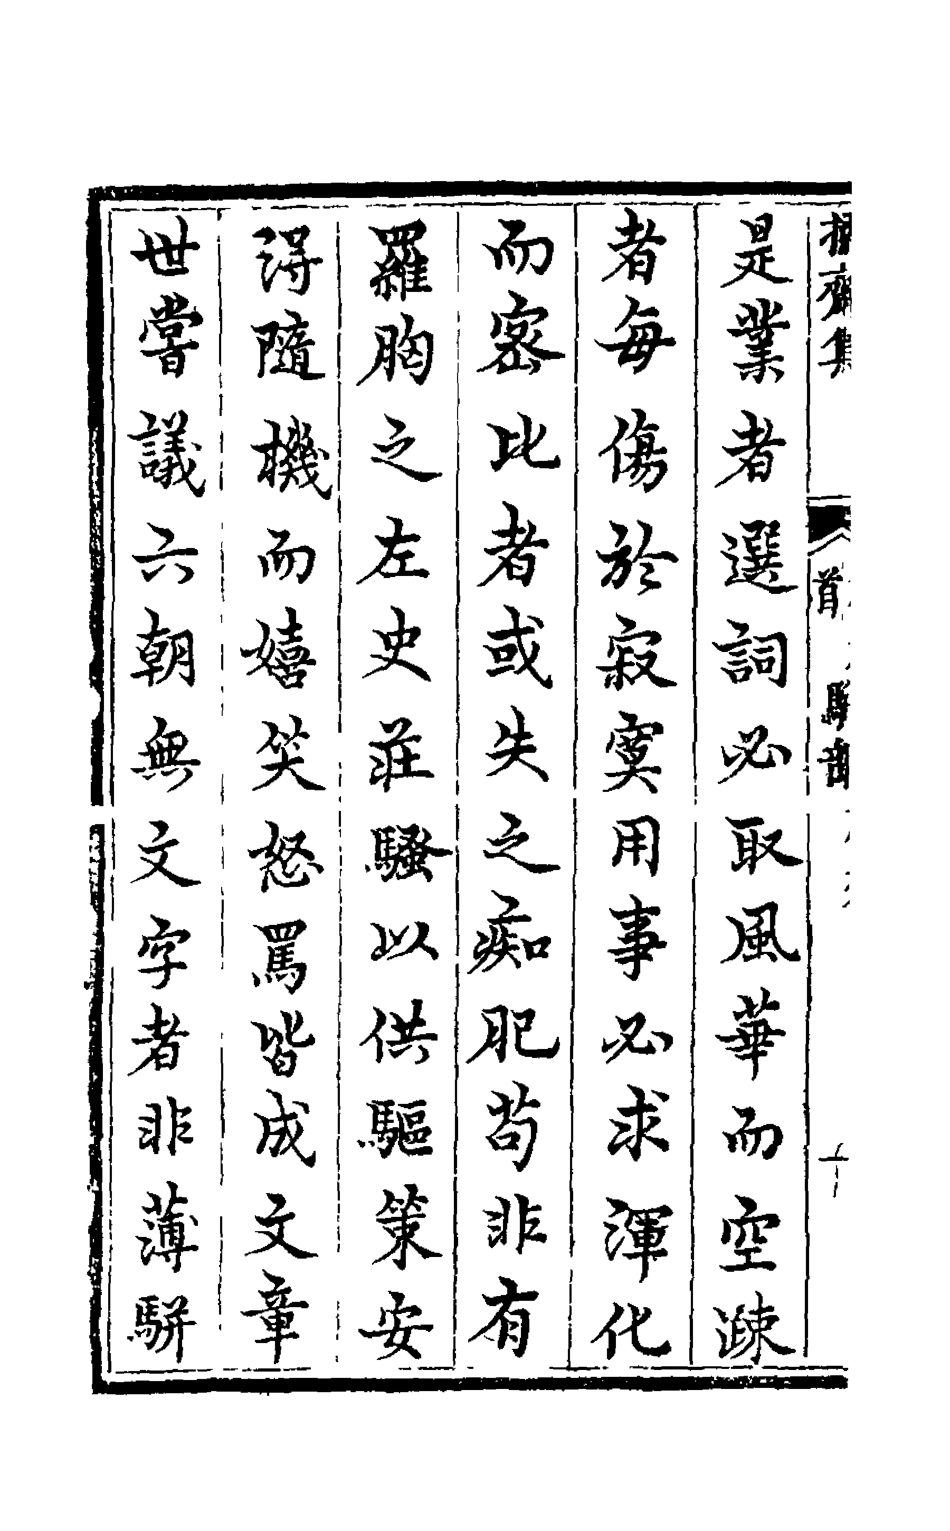 齋集
首
是業者選詞必取風華而空踈
者每傷於寂寞用事必求渾化
而宻比者或失之痴肥苟非有
羅胸之左史莊騷以供驅策安
得隨機而嬉笑怒罵皆成文章
世嘗議六朝無文字者非薄駢